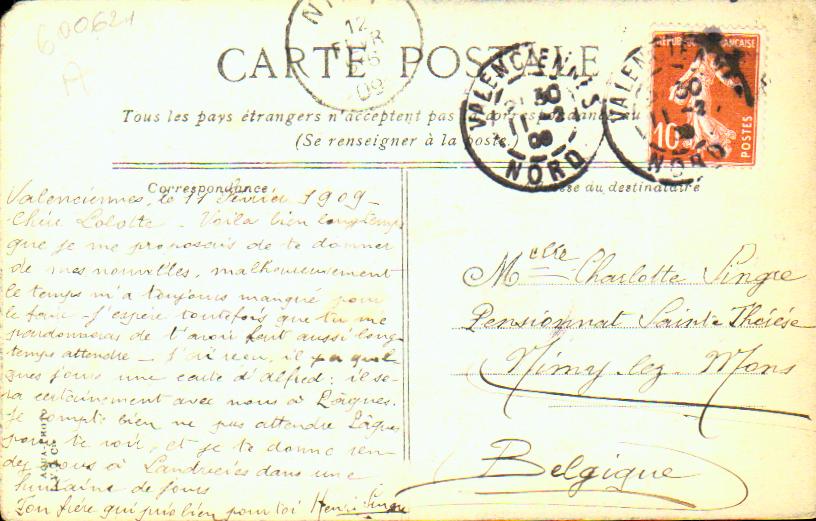 600621
A
NIMY
12
09
CARTE POSTALE
Tous les pays étrangers n'acceptent pas la correspondance au
(Se renseigner à la poste.)
VALENCIENNES
30
11-2
09
NORD
VALENCIENNES
30
11-2
09
NORD
REPUBLIQUE FRANÇAISE
10
POSTES
Correspondance
Adresse du destinataire
Valenciennes, le 11 février 1909 -
Chère Lolotte - Voilà bien longtemps
que je me proposais de te donner
de mes nouvelles, malheureusement
le temps m'a toujours manqué pour
le faire - J'espère toutefois que tu me
pardonneras de t'avoir fait aussi long-
temps attendre - J'ai reçu, il y a quel-
ques jours une carte d'Alfred : il se-
ra certainement avec nous à Pâques.
Je compte bien ne pas attendre Pâques
pour te voir, et je te donne ren-
dez-vous à Landrecies dans une
huitaine de jours
Ton frère qui prie bien pour toi Henri Singre
Melle Charlotte Singre
Pensionnat Sainte Thérèse
Nimy-lez-Mons
Belgique
AQUA-PHOTO